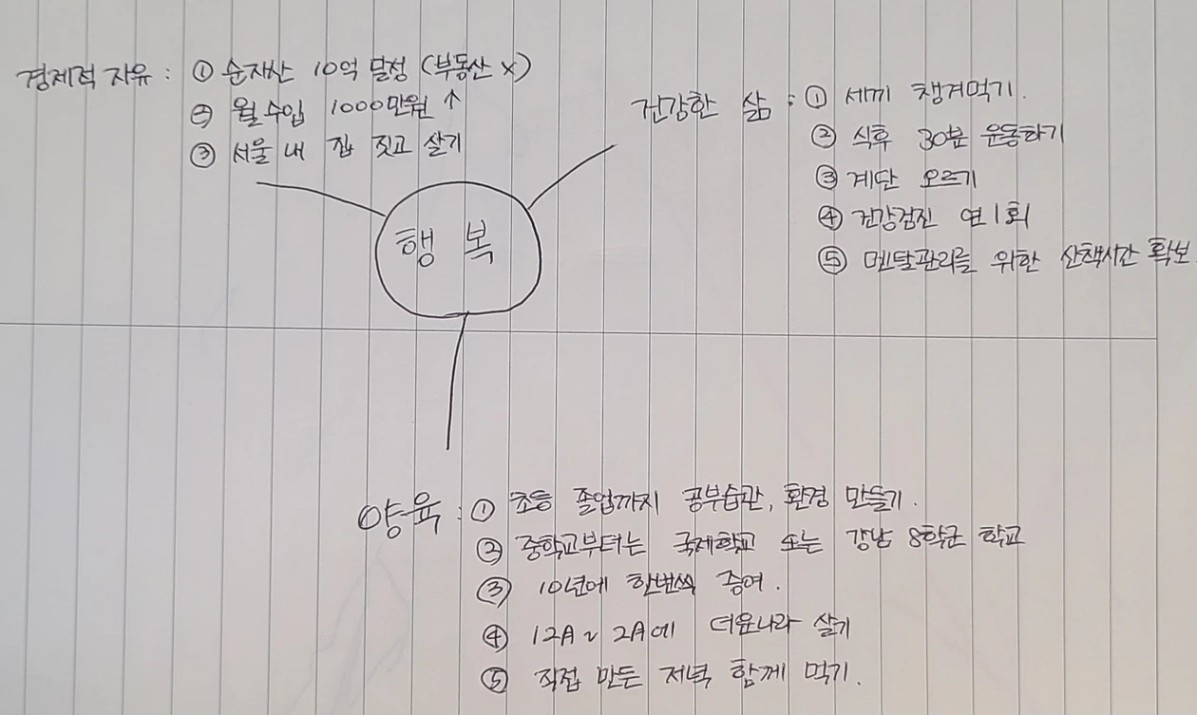 경제적 자유 : ① 순자산 10억 달성 (부동산 X)
② 월수입 1000만원 ↑
③ 서울 내 집 짓고 살기
건강한 삶 : ① 세끼 챙겨먹기.
② 식후 30분 운동하기
③ 계단 오르기
④ 건강검진 연 1회
⑤ 멘탈관리를 위한 산책시간 확보
행복
양육 : ① 초등 졸업까지 공부습관, 환경 만들기.
② 중학교부터는 국제학교 또는 강남 8학군 학교
③ 10년에 한번씩 증여.
④ 12月~2月에 더운나라 살기
⑤ 직접 만든 저녁 함께 먹기.